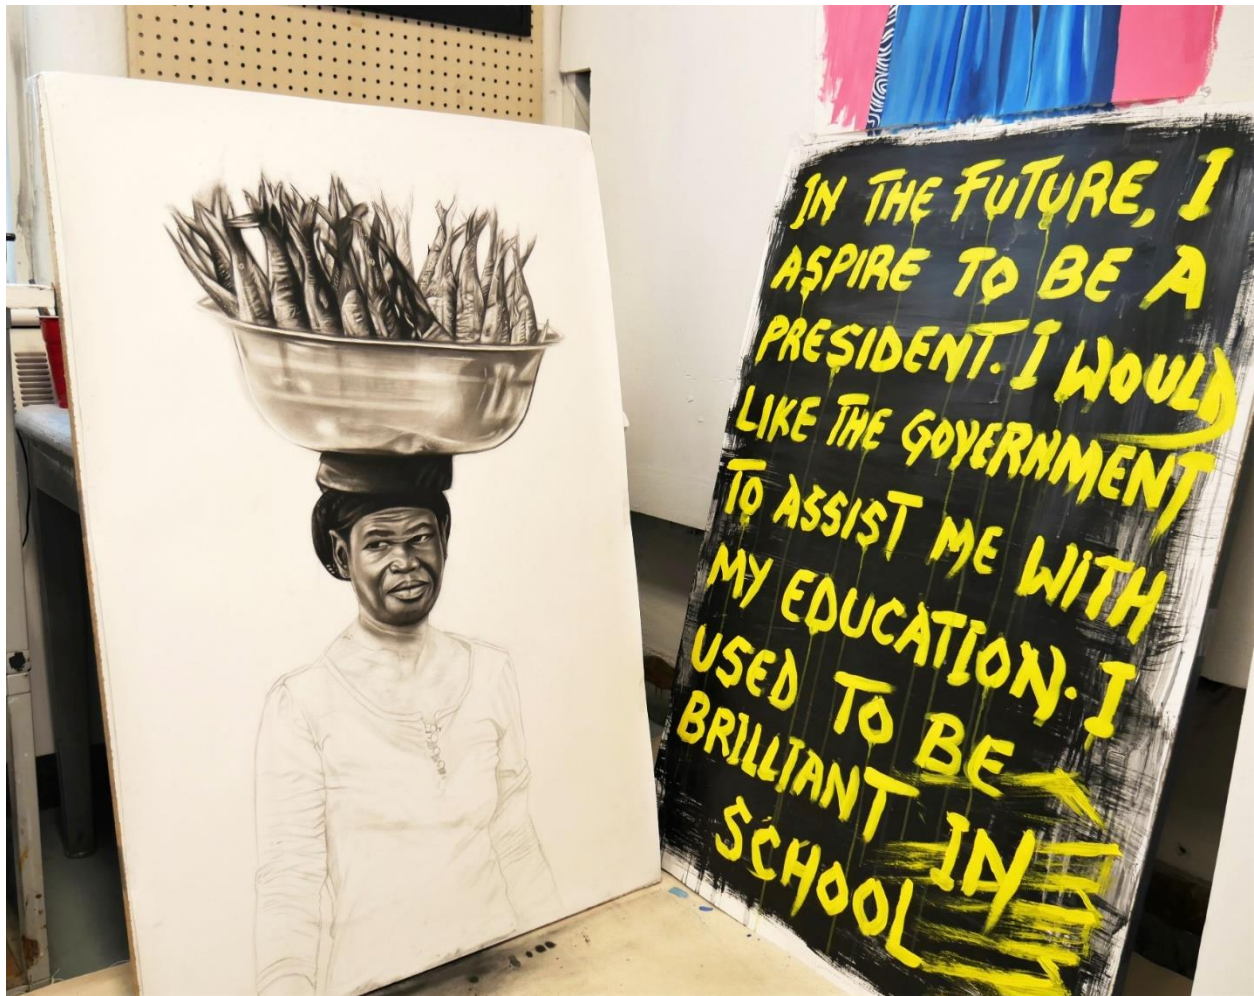 IN THE FUTURE, I
ASPIRE TO BE A
PRESIDENT. I WOULD
LIKE THE GOVERNMENT
TO ASSIST ME WITH
MY EDUCATION. I
USED TO BE
BRILLIANT IN
SCHOOL